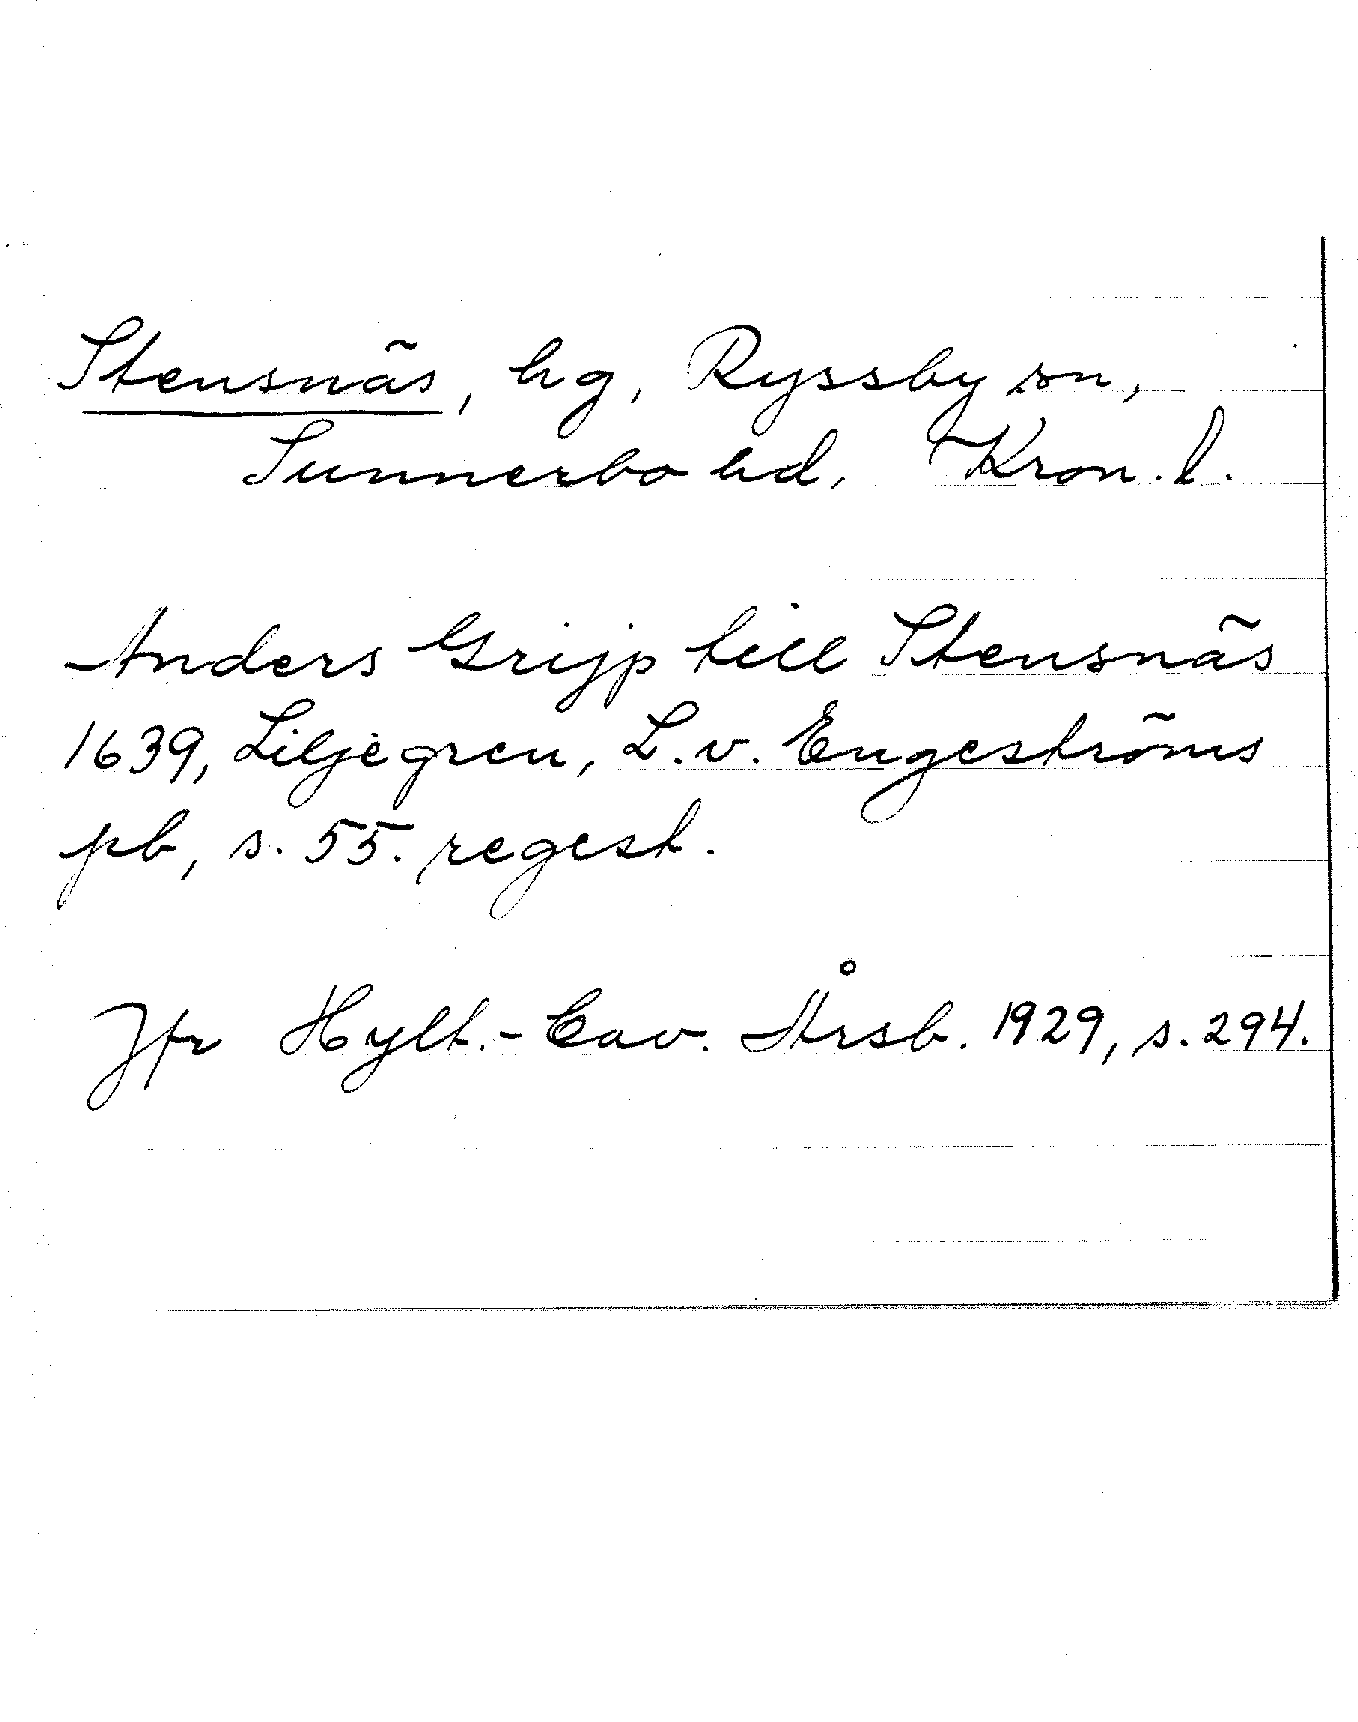 Stensnäs, hg, Ryssby sn,
Sunnerbo hd, Kron. l.
Anders Grijp till Stensnäs
1639, Liljegren, L. v. Engeströms
pb, s. 55. regest.
Jfr Hylt.-Cav. Årsb. 1929, s. 294.